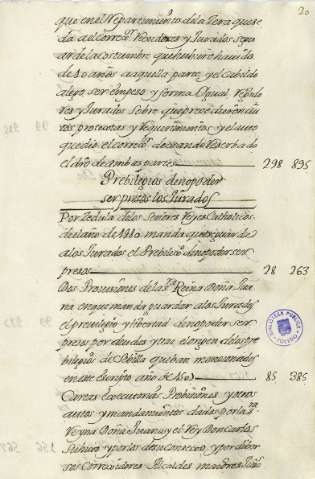 20
que en el Repartimiento de la tierra que se
da al corre.r Rexidores y Jurados se guar
de la costumbre que hubiere havido
de 40 años a aquella parte y el Cabildo
alego ser Confuso y forma Ygual Rexido
res y Jurados sobre que presentaron au
tos protestas y Requerimientos y el auto
que dio el corre.r dejando Reserbado
el dro de ambas partes 298 895
Prebilegios de no poder
ser presos los Jurados
Por Zedula de los Señores Reyes Catholicos
del año de 1480 mandan que se guarde
a los Jurados el Prebilegio de no poder ser
presos 28 263
Dos Provisiones de la S.ra Reina Doña Jua
na en que manda guardar a los Jurados
el previlegio y libertad de no poder ser
presos por deuda y en el otro los pre
bilegios de Sevilla que ban mencionados
en este escripto año de 150 85 385
Cartas Executorias Probisiones y otros
autos y mandamientos dados por la
Reyna Doña Juana y el Rey Don Carlos
su hixo y por los de su consexo y por dibers
sos Correxidores Alcaldes maiores
BIBLIOTECA PUBLICA TOLEDO